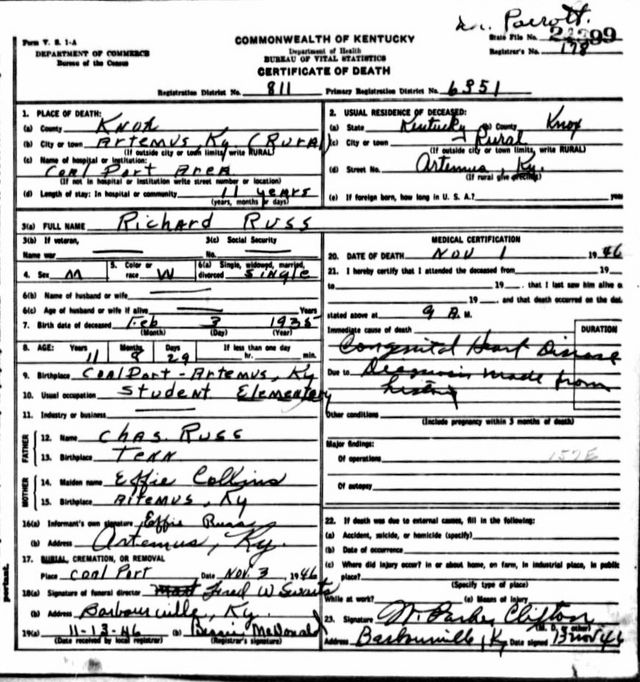 Dr. Parrott.
Form V. S. 1-A
DEPARTMENT OF COMMERCE
Bureau of the Census
COMMONWEALTH OF KENTUCKY
Department of Health
BUREAU OF VITAL STATISTICS
CERTIFICATE OF DEATH
State File No.
Registrar's No. 178
Registration District No. 811 Primary Registration District No. 6351
1. PLACE OF DEATH:
(a) County Knox
(b) City or town Artemus, Ky (Rural)
(If outside city or town limits, write RURAL)
(c) Name of hospital or institution:
Coal Port Area
(If not in hospital or institution write street number or location)
(d) Length of stay: In hospital or community 11 years
(years, months or days)
2. USUAL RESIDENCE OF DECEASED:
(a) State Kentucky (b) County Knox
(c) City or town Rural
(If outside city or town limits, write RURAL)
(d) Street No. Artemus, Ky.
(If rural give precinct)
(e) If foreign born, how long in U. S. A.? years
3(a) FULL NAME Richard Russ
3(b) If veteran,
Name war
3(c) Social Security
No.
4. Sex M
5. Color or
race W
6(a) Single, widowed, married,
divorced Single
6(b) Name of husband or wife
6(c) Age of husband or wife if alive Years
7. Birth date of deceased Feb 3 1935
(Month) (Day) (Year)
8. AGE: Years Months Days If less than one day
11 8 29 hr. min.
9. Birthplace Coal Port - Artemus, Ky
10. Usual occupation Student Elementary
11. Industry or business
FATHER
12. Name Chas. Russ
13. Birthplace Tenn
MOTHER
14. Maiden name Effie Collins
15. Birthplace Artemus, Ky
16(a) Informant's own signature Effie Russ
(b) Address Artemus, Ky.
17. BURIAL, CREMATION, OR REMOVAL
Place Coal Port Date Nov 3 1946
18(a) Signature of funeral director Fred W
(b) Address Barbourville, Ky.
19(a) 11-13-46 (b) Bessie McDonald
(Date received by local registrar) (Registrar's signature)
MEDICAL CERTIFICATION
20. DATE OF DEATH Nov 1 1946
21. I hereby certify that I attended the deceased from 19
to 19 that I saw him alive o
19 and that death occurred on the dat
stated above at 9 A. M.
Immediate cause of death
DURATION
Congenital Heart Disease
Due to Diagnosis made from
history
Other conditions
(Include pregnancy within 3 months of death)
Major findings:
Of operations
157E
Of autopsy
22. If death was due to external causes, fill in the following:
(a) Accident, suicide, or homicide (specify)
(b) Date of occurrence
(c) Where did injury occur? in or about home, on farm, in industrial place, in public
place?
(Specify type of place)
While at work? (e) Means of injury
23. Signature W. Parker Clifton
(M. D. or other)
Address Barbourville, Ky Date signed 13 Nov 46
portant.